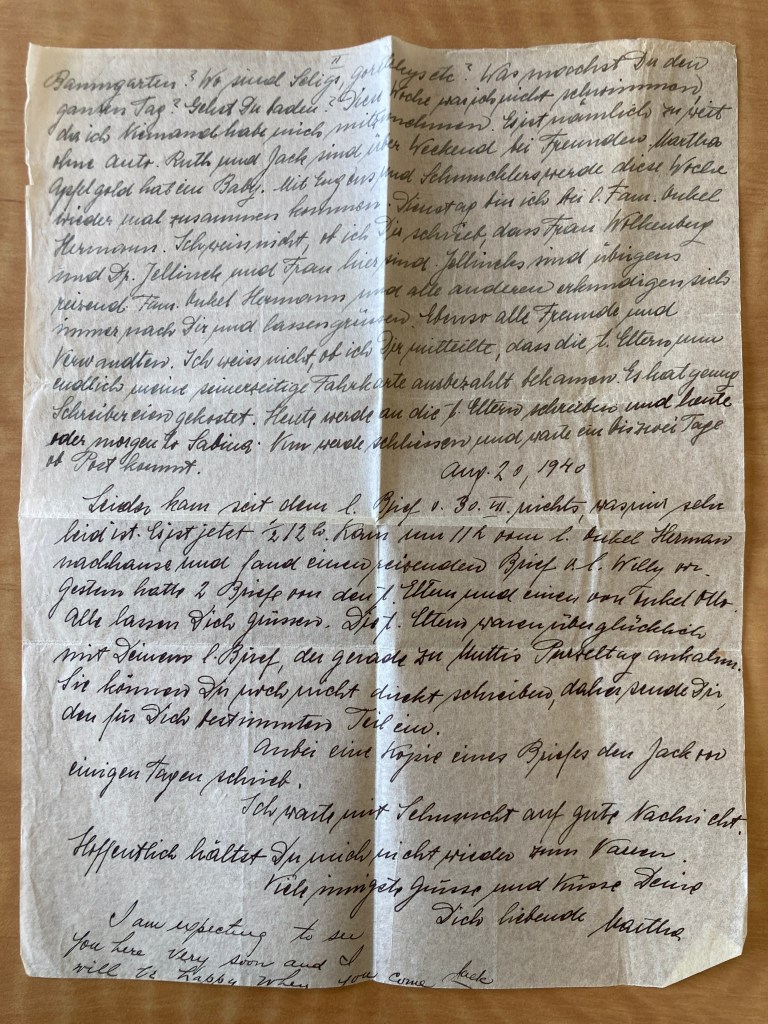 II
Baumgarten? Wo sind Seligs, Gordleys etc? Was machst Du den
ganzen Tag? Gehst Du baden? Diese Woche war ich nicht schwimmen,
da ich Niemand habe, mich mitzunehmen. Es ist nämlich zu weit
ohne Auto. Ruth und Jack sind über Weekend bei Freunden. Martha
Apfelgold hat ein Baby. Mit Eugens und Schmuchlers werde diese Woche
wieder mal zusammen kommen. Dienstag bin ich bei l. Fam. Onkel
Hermann. Ich weiss nicht, ob ich Dir schrieb, dass Frau Wolkenberg
und Dr. Jellinek und Frau hier sind. Jellineks sind übrigens
reizend. Fam. Onkel Hermann und alle anderen erkundigen sich
immer nach Dir und lassen grüssen. Ebenso alle Freunde und
Verwandten. Ich weiss nicht, ob ich Dir mitteilte, dass die l. Eltern nun
endlich meine seinerzeitige Fahrkarte ausbezahlt bekamen. Es hat genug
Schreibereien gekostet. Heute werde an die l. Eltern schreiben und heute
oder morgen Sabina. Nun werde schliessen und warte ein bis zwei Tage
ob Post kommt.
Aug. 20, 1940
Leider kam seit dem l. Brief v. 30. VII. nichts, was mir sehr
leid ist. Es ist jetzt 1/2 12 h. Kam um 11 h vom l. Onkel Herman
nachhause und fand einen reizenden Brief v. l. Willy vor.
Gestern hatte 2 Briefe von den l. Eltern und einen von Onkel Otto.
Alle lassen Dich grüssen. Die l. Eltern waren überglücklich
mit Deinem l. Brief, der gerade zu Muttis Purzeltag ankam.
Sie können Dir noch nicht direkt schreiben, daher sende Dir,
den für Dich bestimmten Teil ein.
Anbei eine Kopie eines Briefes den Jack vor
einigen Tagen schrieb.
Ich warte mit Sehnsucht auf gute Nachricht.
Hoffentlich hältst Du mich nicht wieder zum Narren.
Viele innigste Grüsse und Küsse Deine
Dich liebende Martha
I am expecting to see
you here very soon and I
will be happy when you come Jack